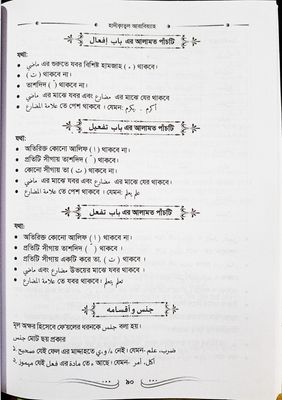 হাদীকাতুল আরাবিয়্যাহ
باب إفعال এর আলামত পাঁচটি
যথা:
● ماضي এর শুরুতে যবর বিশিষ্ট হামজাহ (ء) থাকবে।
● (ت) থাকবে না।
● তাশদিদ (ّ) থাকবে না।
● ماضي এর মাঝে যবর এবং مضارع এর মাঝে যের থাকবে
● علامة المضارع তে পেশ থাকবে । যেমন: أكرم . يكرم
باب تفعيل এর আলামত পাঁচটি
যথা:
● অতিরিক্ত কোনো আলিফ (ا) থাকবে না।
● প্রতিটি সীগায় তাশদিদ (ّ) থাকবে।
● কোনো সীগায় তা (ت) থাকবে না।
● ماضي এর মাঝে যবর এবং مضارع এর মাঝে যের থাকবে।
● علامة المضارع তে পেশ থাকবে । যেমন: علم يعلم
باب تفعل এর আলামত পাঁচটি
যথা:
● অতিরিক্ত কোনো আলিফ (ا) থাকবে না।
● প্রতিটি সীগায় তাশদিদ (ّ) থাকবে ।
● প্রতিটি সীগায় একটি করে তা. (ت) থাকবে ।
● ماضي এবং مضارع উভয়ের মাঝে যবর থাকবে।
● علامة المضارع তে যবর থাকবে। যেমন: تعلم يتعلم
جنس وأقسامه
মূল অক্ষর হিসেবে ফে'য়লের ধরনকে جنس বলা হয়।
جنس মোট ছয় প্রকার
১. صحيح যেই ফেল এর মাদ্দাহতে ء/و/ي নেই। যেমন- ضرب، علم
২. مهموز যেই فعل এর مادة তে ء আছে। যেমন- أكل، أمر
৯০